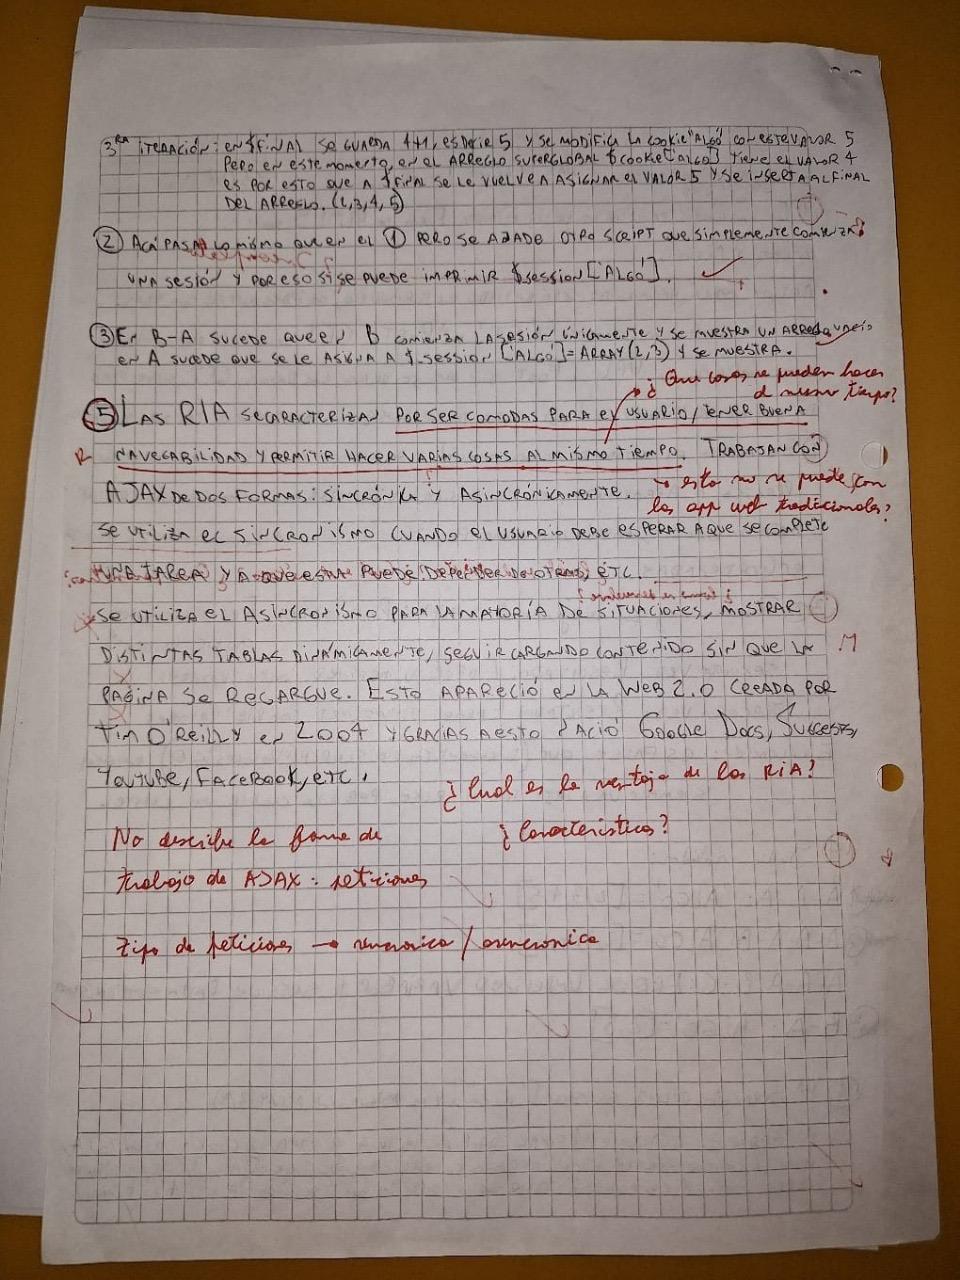 3RA ITERACIÓN: EN $FINAL SE GUARDA 4+1, ES DECIR 5 Y SE MODIFICA LA COOKIE "ALGO" CON ESTE VALOR 5
PERO EN ESTE MOMENTO, EN EL ARREGLO SUPERGLOBAL $COOKIE['ALGO'] TIENE EL VALOR 4
ES POR ESTO QUE A $FINAL SE LE VUELVE A ASIGNAR EL VALOR 5 Y SE INSERTA AL FINAL
DEL ARREGLO. (2,3,4,5)
② ACÁ PASA LO MISMO QUE EN EL ① PERO SE AÑADE OTRO SCRIPT QUE SIMPLEMENTE COMIENZA
UNA SESIÓN Y POR ESO SÍ SE PUEDE IMPRIMIR $SESSION['ALGO'].
③ EN B-A SUCEDE QUE EN B COMIENZA LA SESIÓN ÚNICAMENTE Y SE MUESTRA UN ARREGLO VACÍO
EN A SUCEDE QUE SE LE ASIGNA A $_SESSION['ALGO']=ARRAY(2,3) Y SE MUESTRA.
¿ Que cosas se pueden hacer
al mismo tiempo?
⑤ LAS RIA SE CARACTERIZAN POR SER COMODAS PARA EL USUARIO, TENER BUENA
R NAVEGABILIDAD Y PERMITIR HACER VARIAS COSAS AL MISMO TIEMPO. TRABAJAN CON
AJAX DE DOS FORMAS: SINCRÓNICA Y ASINCRÓNICAMENTE.
→ esto no se puede con
las app web tradicionales?
SE UTILIZA EL SINCRONISMO CUANDO EL USUARIO DEBE ESPERAR A QUE SE COMPLETE
UNA TAREA Y A QUE ESTA PUEDE DEPENDER DE OTRAS, ETC.
SE UTILIZA EL ASINCRONISMO PARA LA MAYORÍA DE SITUACIONES, MOSTRAR
DISTINTAS TABLAS DINÁMICAMENTE, SEGUIR CARGANDO CONTENIDO SIN QUE LA M
PAGINA SE RECARGUE. ESTO APARECIÓ EN LA WEB 2.0 CREADA POR
TIM O'REILLY EN 2004 Y GRACIAS A ESTO NACIÓ GOOGLE DOCS,
YOUTUBE, FACEBOOK, ETC.
¿Cual es la ventaja de las RIA?
¿Caracteristicas?
No describe la forma de
trabajo de AJAX: peticiones
tipo de peticiones → sincronica / asincronica